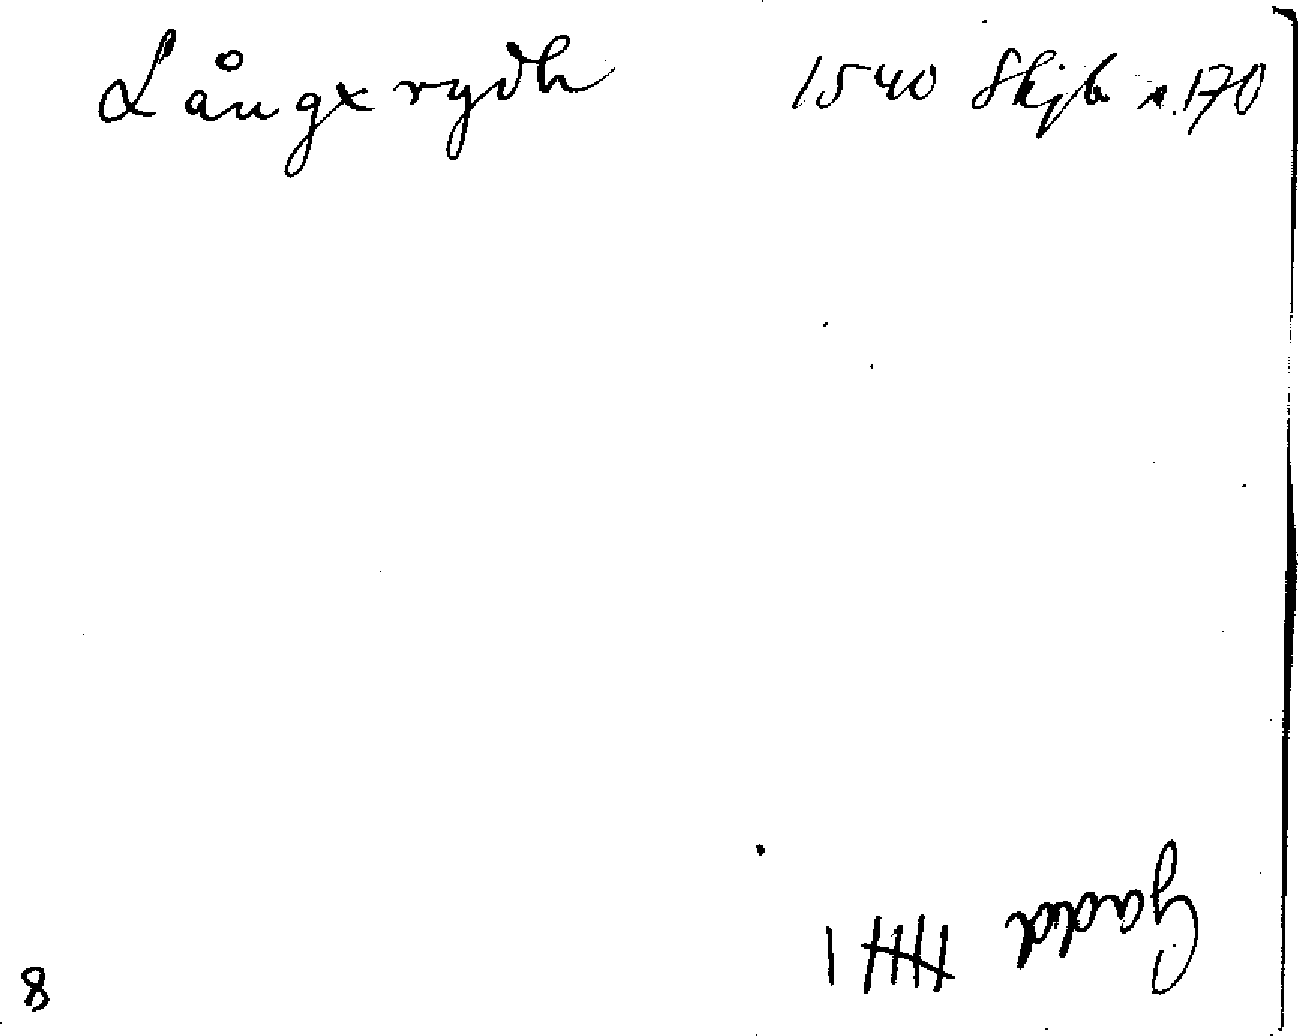 Långxrydh 1540 Skjb n. 170
Gadd
8